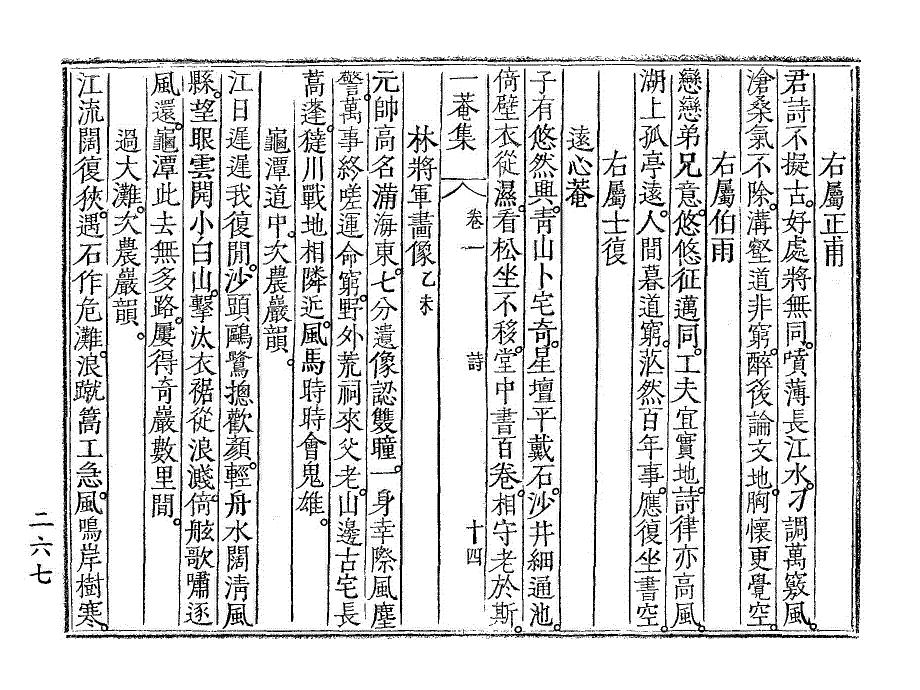 右屬正甫
君詩不擬古。好處將無同。噴薄長江水。才調萬竅風。
滄桑氣不除。溝壑道非窮。醉後論文地。胸懷更覺空。
右屬伯雨
戀戀弟兄意。悠悠征邁同。工夫宜實地。詩律亦高風。
湖上孤亭遠。人間暮道窮。茫然百年事。應復坐書空。
右屬士復
遠心菴
子有悠然興。靑山卜宅奇。星壇平戴石。沙井細通池。
倚壁衣從濕。看松坐不移。堂中書百卷。相守老於斯。
一菴集 卷一 詩 十四
林將軍畵像 乙未
元帥高名滿海東。七分遺像認雙瞳。一身幸際風塵
警。萬事終嗟運命窮。野外荒祠來父老。山邊古宅長
蒿蓬。㺚川戰地相隣近。風馬時時會鬼雄。
龜潭道中。次農巖韻。
江日遲遲我復閒。沙頭鷗鷺摠歡顏。輕舟水闊淸風
縣。望眼雲開小白山。擊汰衣裾從浪濺。倚舷歌嘯逐
風還。龜潭此去無多路。屢得奇巖數里間。
過大灘。次農巖韻。
江流闊復狹。遇石作危灘。浪蹴篙工急。風鳴岸樹寒。
二六七